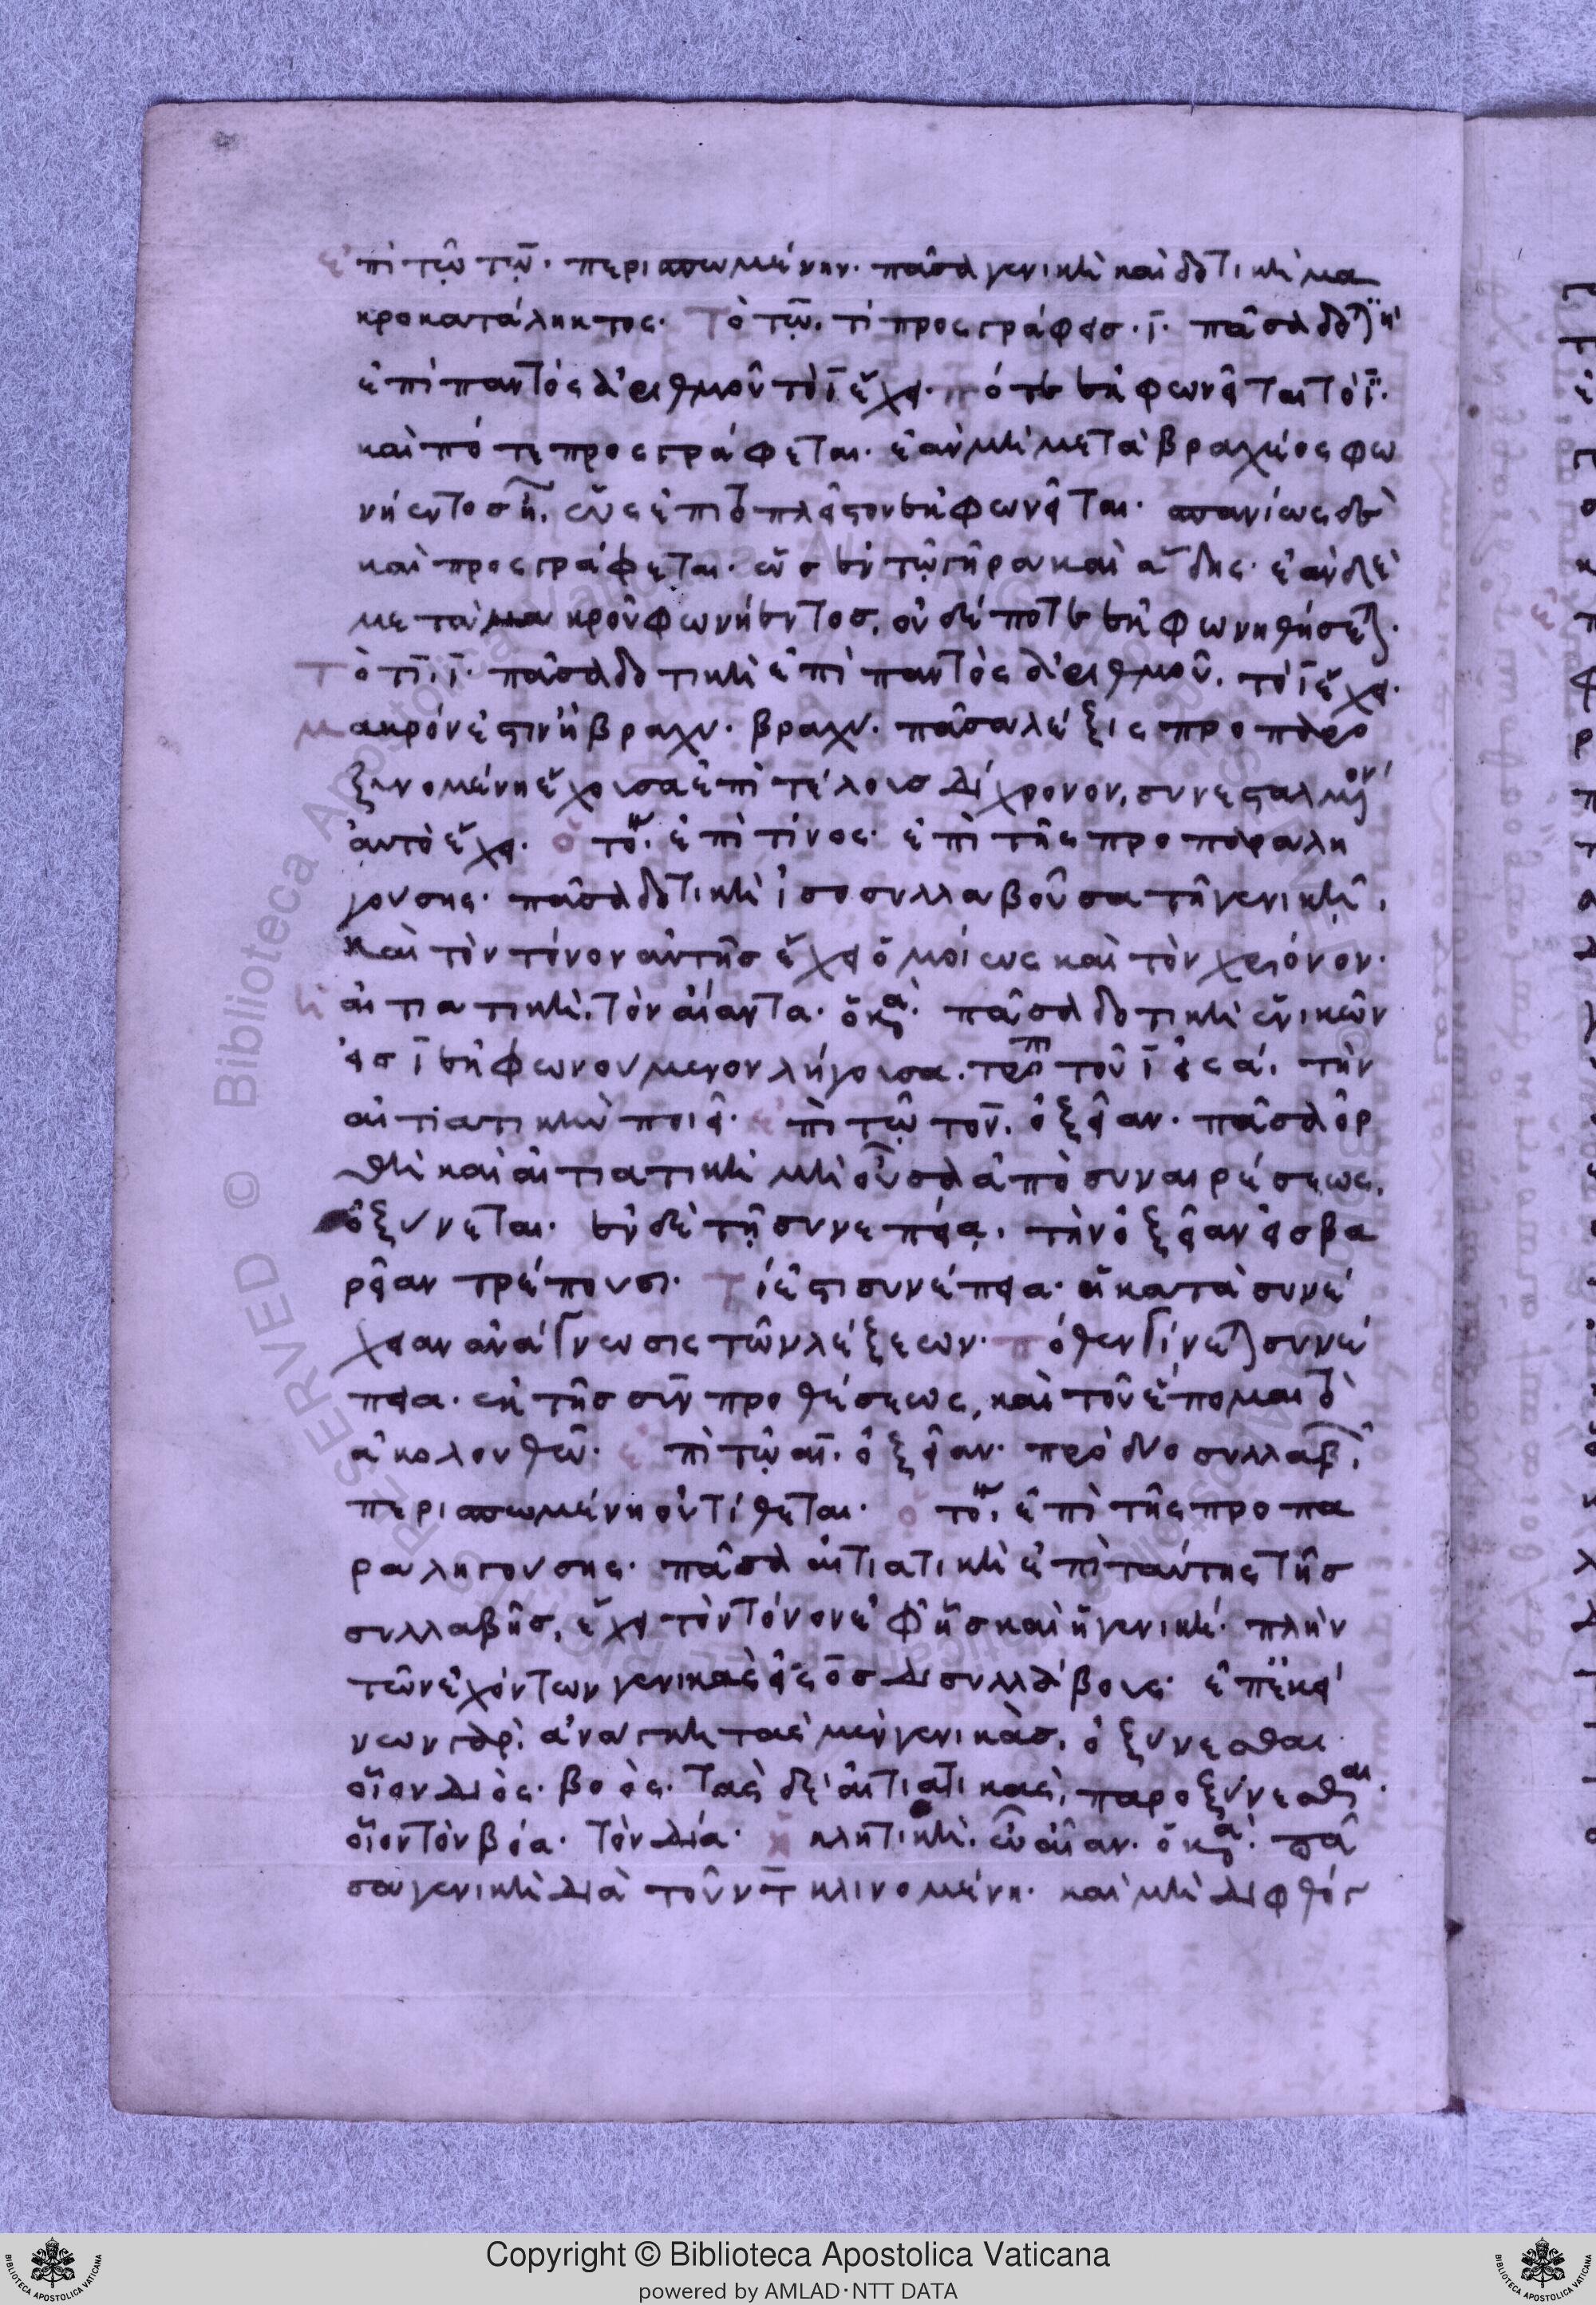 ἐπὶ τῷ τω̄. περισπωμένην. πᾶσα γενικὴ καὶ δοτικὴ μα
κροκατάληκτος. Τὸ τω̄. τί προσγράφεις. ῑ. πᾶσα δοτικὴ
ἐπὶ παντὸς ἀριθμοῦ τὸ ῑ ἔχει. πότε ἐκφωνεῖται τὸ ῑ.
καὶ πότε προσγράφεται. ἐὰν μὴ μετὰ βραχέος φω
νήεντος ῇ, ὡς ἐπιτοπλεῖστον ἐκφωνεῖται. σπανίως δὲ
καὶ προσγράφεται. ὡς ἐν τῷ γήρᾳ καὶ ᾅδης. ἐὰν δὲ
μετὰ μακροῦ φωνήεντος, οὐδέποτε ἐκφωνηθήσεται.
Τὸ τῑ. ῑ. πᾶσα δοτικὴ ἐπὶ παντὸς ἀριθμοῦ, τὸ ῑ ἔχει.
μακρόν ἐστιν ἢ βραχύ. βραχύ. πᾶσα λέξις προπαρο
ξυνομένη ἔχουσα ἐπὶ τέλους δίχρονον, συνεσταλμένον
αὐτὸ ἔχει. ὁ τό. ἐπὶ τίνος. ἐπὶ τῆς προπαραλη
γούσης. πᾶσα δοτικὴ ἰσοσυλλαβοῦσα τῇ γενικῇ,
καὶ τὸν τόνον αὐτῆς ἔχει ὁμοίως καὶ τὸν χρόνον.
ἡ αἰτιατική. τὸν αἴαντα. ὁ κα. πᾶσα δοτικὴ ἑνικῶν
εἰς ῑ ἐκφωνούμενον λήγουσα. τροπῇ τοῦ ῑ εἰς α, τὴν
αἰτιατικὴν ποιεῖ. ἐπὶ τῷ τον̄. ὀξεῖαν. πᾶσα ὀρ
θὴ καὶ αἰτιατικὴ μὴ οὖσα ἀπὸ συναιρέσεως,
ὀξύνεται. ἐν δὲ τῇ συνεπείᾳ, τὴν ὀξεῖαν εἰς βα
ρεῖαν τρέπουσι. Τί ἐστι συνέπεια. ἡ κατὰ συνέ
χειαν ἀνάγνωσις τῶν λέξεων. πόθεν γίνεται συνέ
πεια. ἐκ τῆς σὺν προθέσεως, καὶ τοῦ ἕπομαι τὸ
ἀκολουθῶ. ἐπὶ τῷ αῑ. ὀξεῖαν. πρὸ δύο συλλαβῶν
περισπωμένη οὐ τίθεται. ὁ τό. ἐπὶ τῆς προπα
ραληγούσης. πᾶσα αἰτιατικὴ ἐπὶ ταύτης τῆς
συλλαβῆς, ἔχει τὸν τόνον ἐφ' ἧς καὶ ἡ γενική. πλὴν
τῶν ἐχόντων γενικὰς εἰς ος δισυλλάβους. ἐπ' ἐκεί
νων γὰρ. ἀνάγκη τὰς μὲν γενικὰς, ὀξύνεσθαι.
οἷον διός. βοός. τὰς δὲ αἰτιατικὰς, παροξύνεσθαι.
οἷον τὸν βόα. τὸν δία. ἡ κλητική. ὦ αἶαν. ὁ κα. πᾶ
σα γενικὴ διὰ τοῦ ντ κλινομένη. καὶ μὴ διφθόγ
Copyright © Biblioteca Apostolica Vaticana
powered by AMLAD·NTT DATA